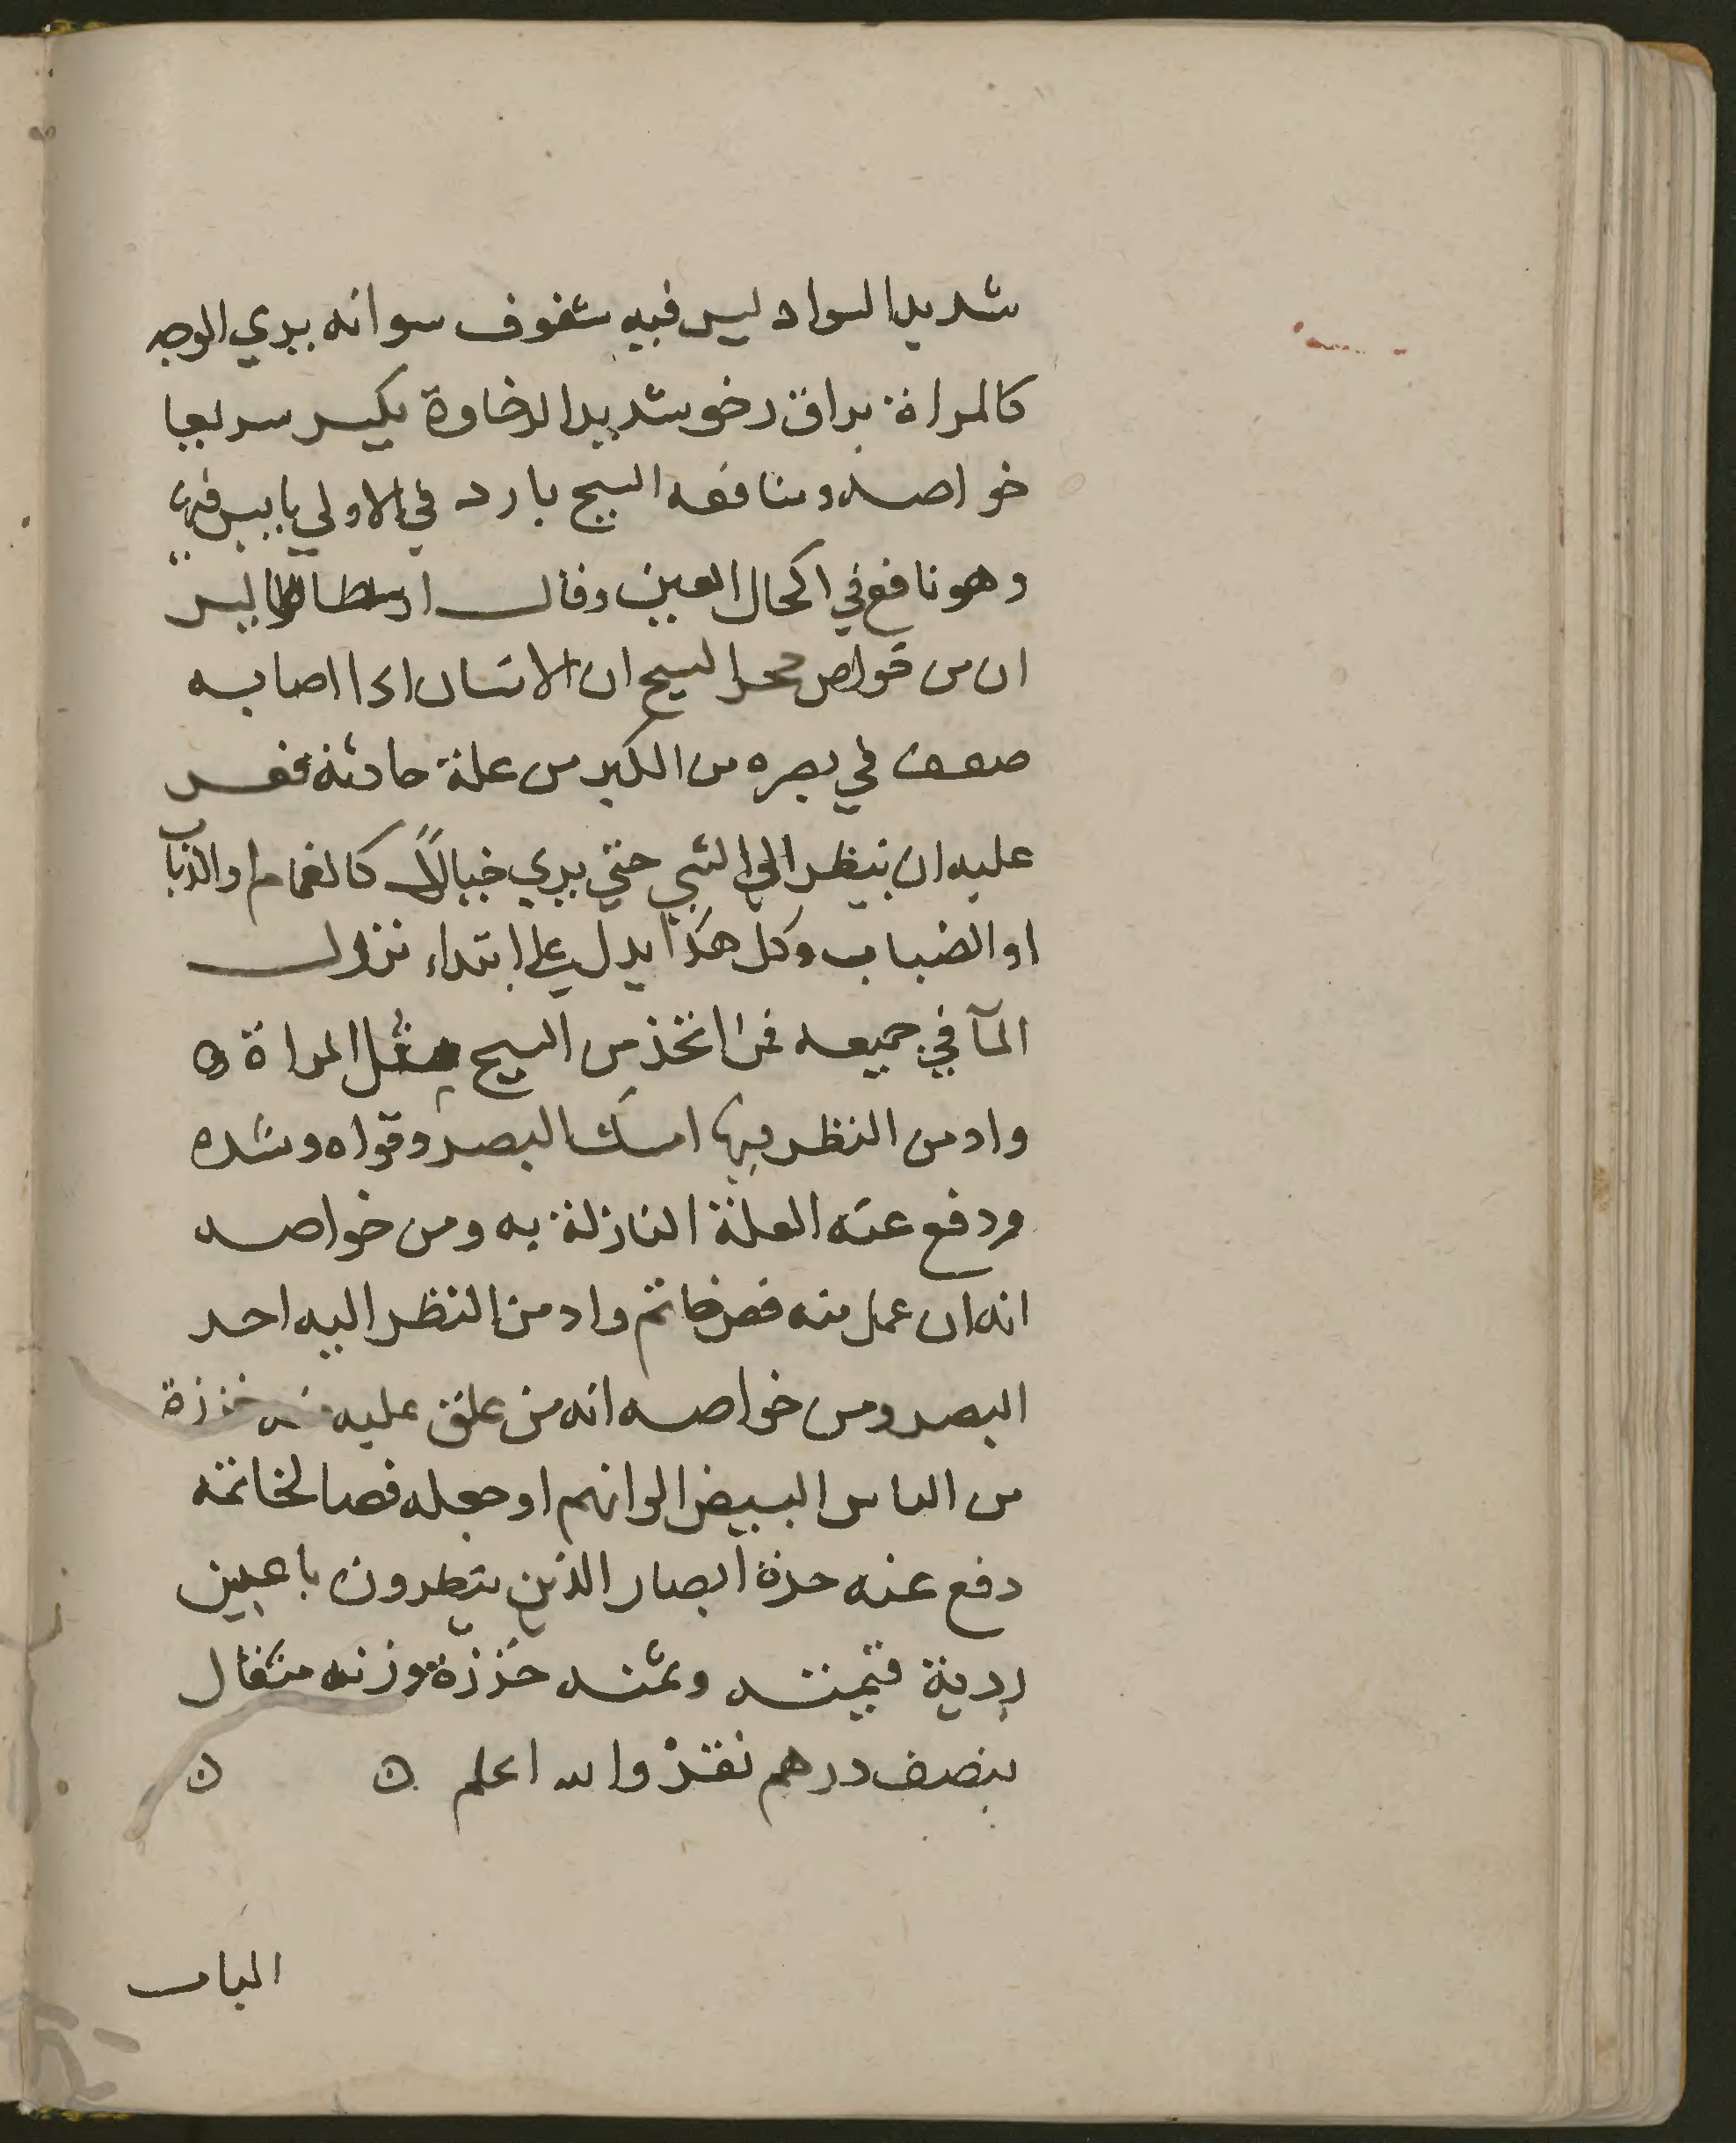 شديد السواد ليس فيه شفوف سوا انه يري الوجه
كالمراة براق رخو شديد الرخاوة يكسر سريعا
خواصه ومنافعه السبج بارد في الاولي يابس فيها
وهو نافع في اكحال العين وقال ارسطاطاليس
ان من خواص حجر السبج ان الانسان اذا اصابه
ضعف في بصره من الكبر من علة حادثة فعسر
عليه ان ينظر الي الشي حتي يري خيالاً كالغمام والذباب
او الضباب وكل هذا يدل علي ابتداء نزول
المآ في جميعه فمن اتخذ من السبج مثل المراة
وادمن النظر فيها امسك البصر وقواه وشده
ودفع عنه العلة النازلة به ومن خواصه
انه ان عمل منه فص خاتم وادمن النظر اليه احد
البصر ومن خواصه انه من علق عليه منه خرزة
من الناس البيض الوانهم او جعله فصا لخاتمه
دفع عنه حدة ابصار الذين ينظرون باعين
ردية قيمته وثمنه خرزة وزنه مثقال
بنصف درهم نقد والله اعلم
الباب